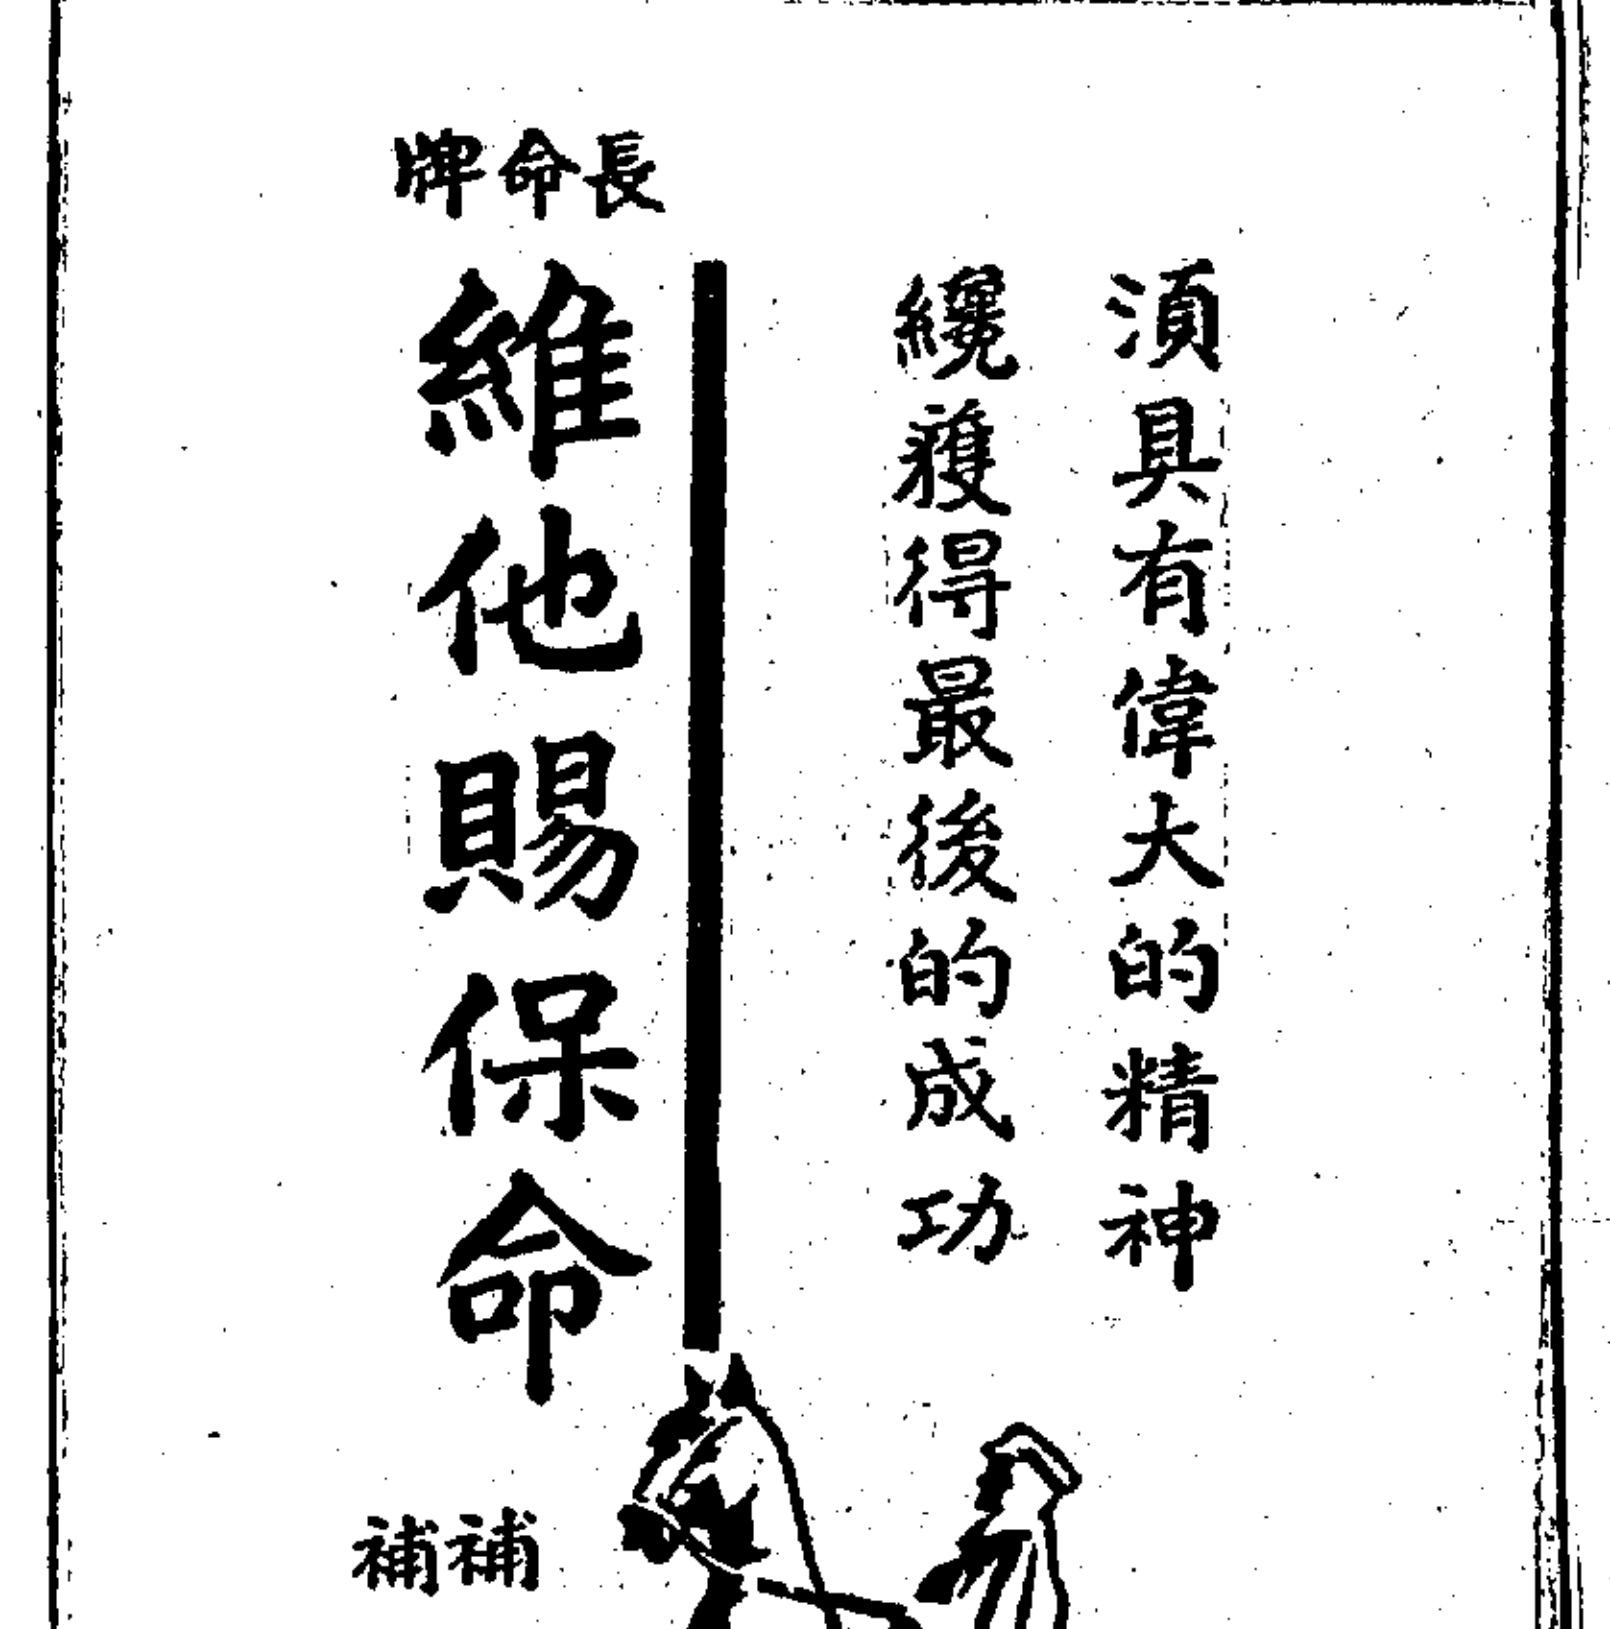 須具有偉大的精神
纔獲得最後的成功
長命牌
維他賜保命
補補